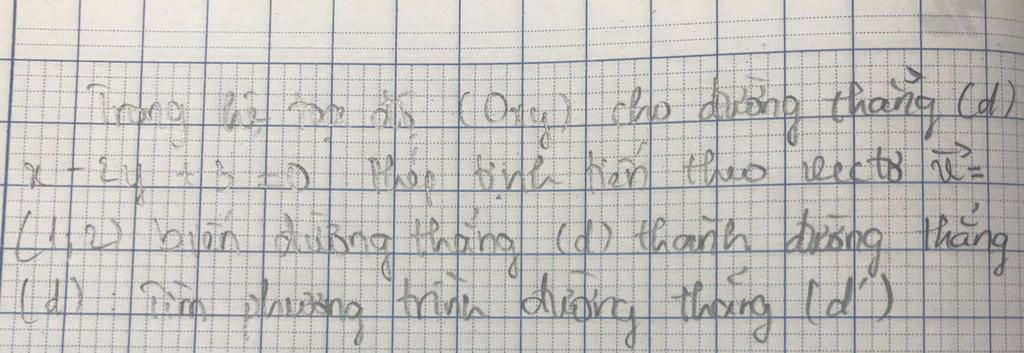 Trong hệ tọa độ (Oxy) cho đường thẳng (d)
x - 2y + 3 = 0 Phép tịnh tiến theo vectơ v⃗ =
(1,2) biến đường thẳng (d) thành đường thẳng
(d). Tìm phương trình đường thẳng (d')